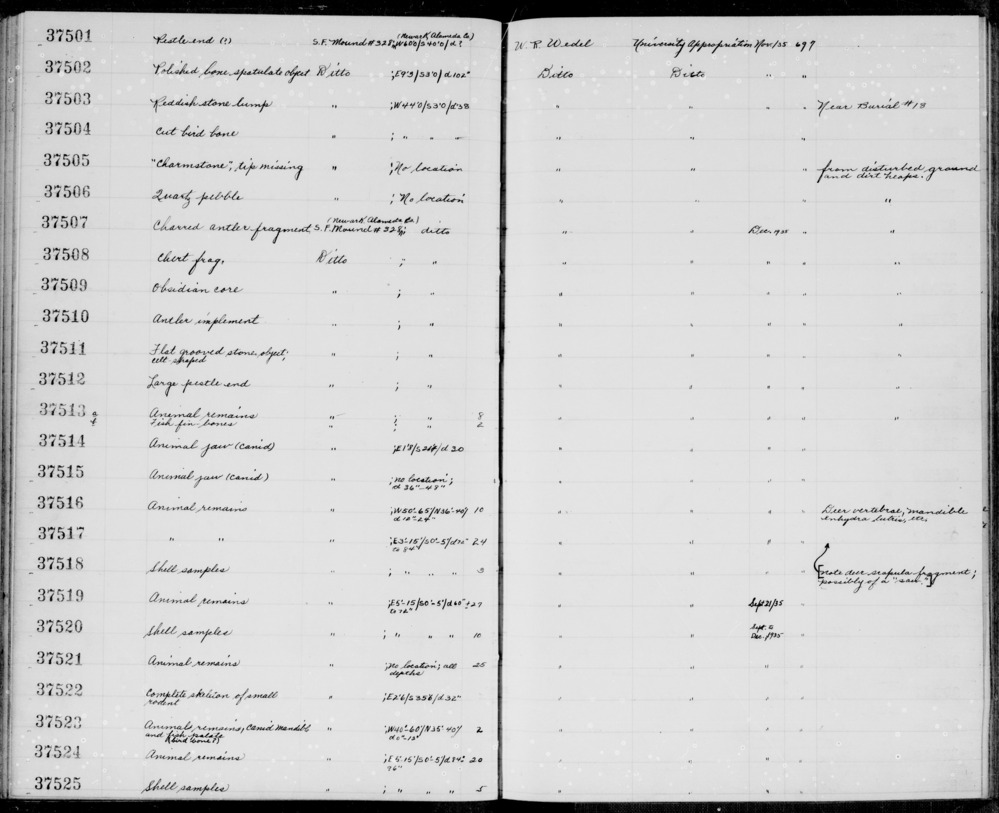 37501 Pestle end (?) S.F. Mound #328; (Newark, Alameda Co.) W60'0/S40'0/d? W. R. Wedel University Appropriation Nov/35 697
37502 Polished bone spatulate object Ditto ; E9'3/S3'0/d102" Ditto Ditto " "
37503 Reddish stone lump " ; W44'0/S3'0/d38 " " " " Near Burial #13
37504 Cut bird bone " ; " " " " " " "
37505 "Charmstone", tip missing " ; No location " " " " from disturbed ground
and dirt heaps.
37506 Quartz pebble " ; No location " " " " "
37507 Charred antler fragment S.F. Mound #328; (Newark, Alameda Co.) ditto " " Dec. 1935 " "
37508 Chert frag. Ditto ; " " " " " "
37509 Obsidian core " ; " " " " " "
37510 Antler implement " ; " " " " " "
37511 Flat grooved stone object; " ; " " " " " "
celt shaped
37512 Large pestle end " ; " " " " " "
37513 a Animal remains " ; " 8 " " " " "
f Fish fin bones " ; " 2
37514 Animal jaw (canid) " " " " "
37515 Animal jaw (canid) " ; No location; " " " "
d 36"-48"
37516 Animal remains " ; W50'-65'/N36'-40'/ 10 " " " " Deer vertebrae; mandible
d 10"-24" enhydra lutris, etc.
37517 " " " 24 " " " "
to 84"
37518 Shell samples " ; " " " " 3 " " " " [note deer scapula fragment;
possibly of a "saw."]
37519 Animal remains " ; E5'-15'/S0'-5'/d60" 27 " " Sept 21/35 "
to 76"
37520 Shell samples " ; " " " " 10 " " Sept. to "
Dec. 1935
37521 Animal remains " ; No location; all 25 " " " "
depths
37522 Complete skeleton of small " " " " "
rodent
37523 Animals remains; canid mandible " ; W40'-60'/N35'-40'/ 2 " " " "
and fish palate
(bird bone?)
37524 Animal remains " ; E5'-15'/S0'-5'/d74"- 20 " " " "
76"
37525 Shell samples " ; " " " " 5 " " " "